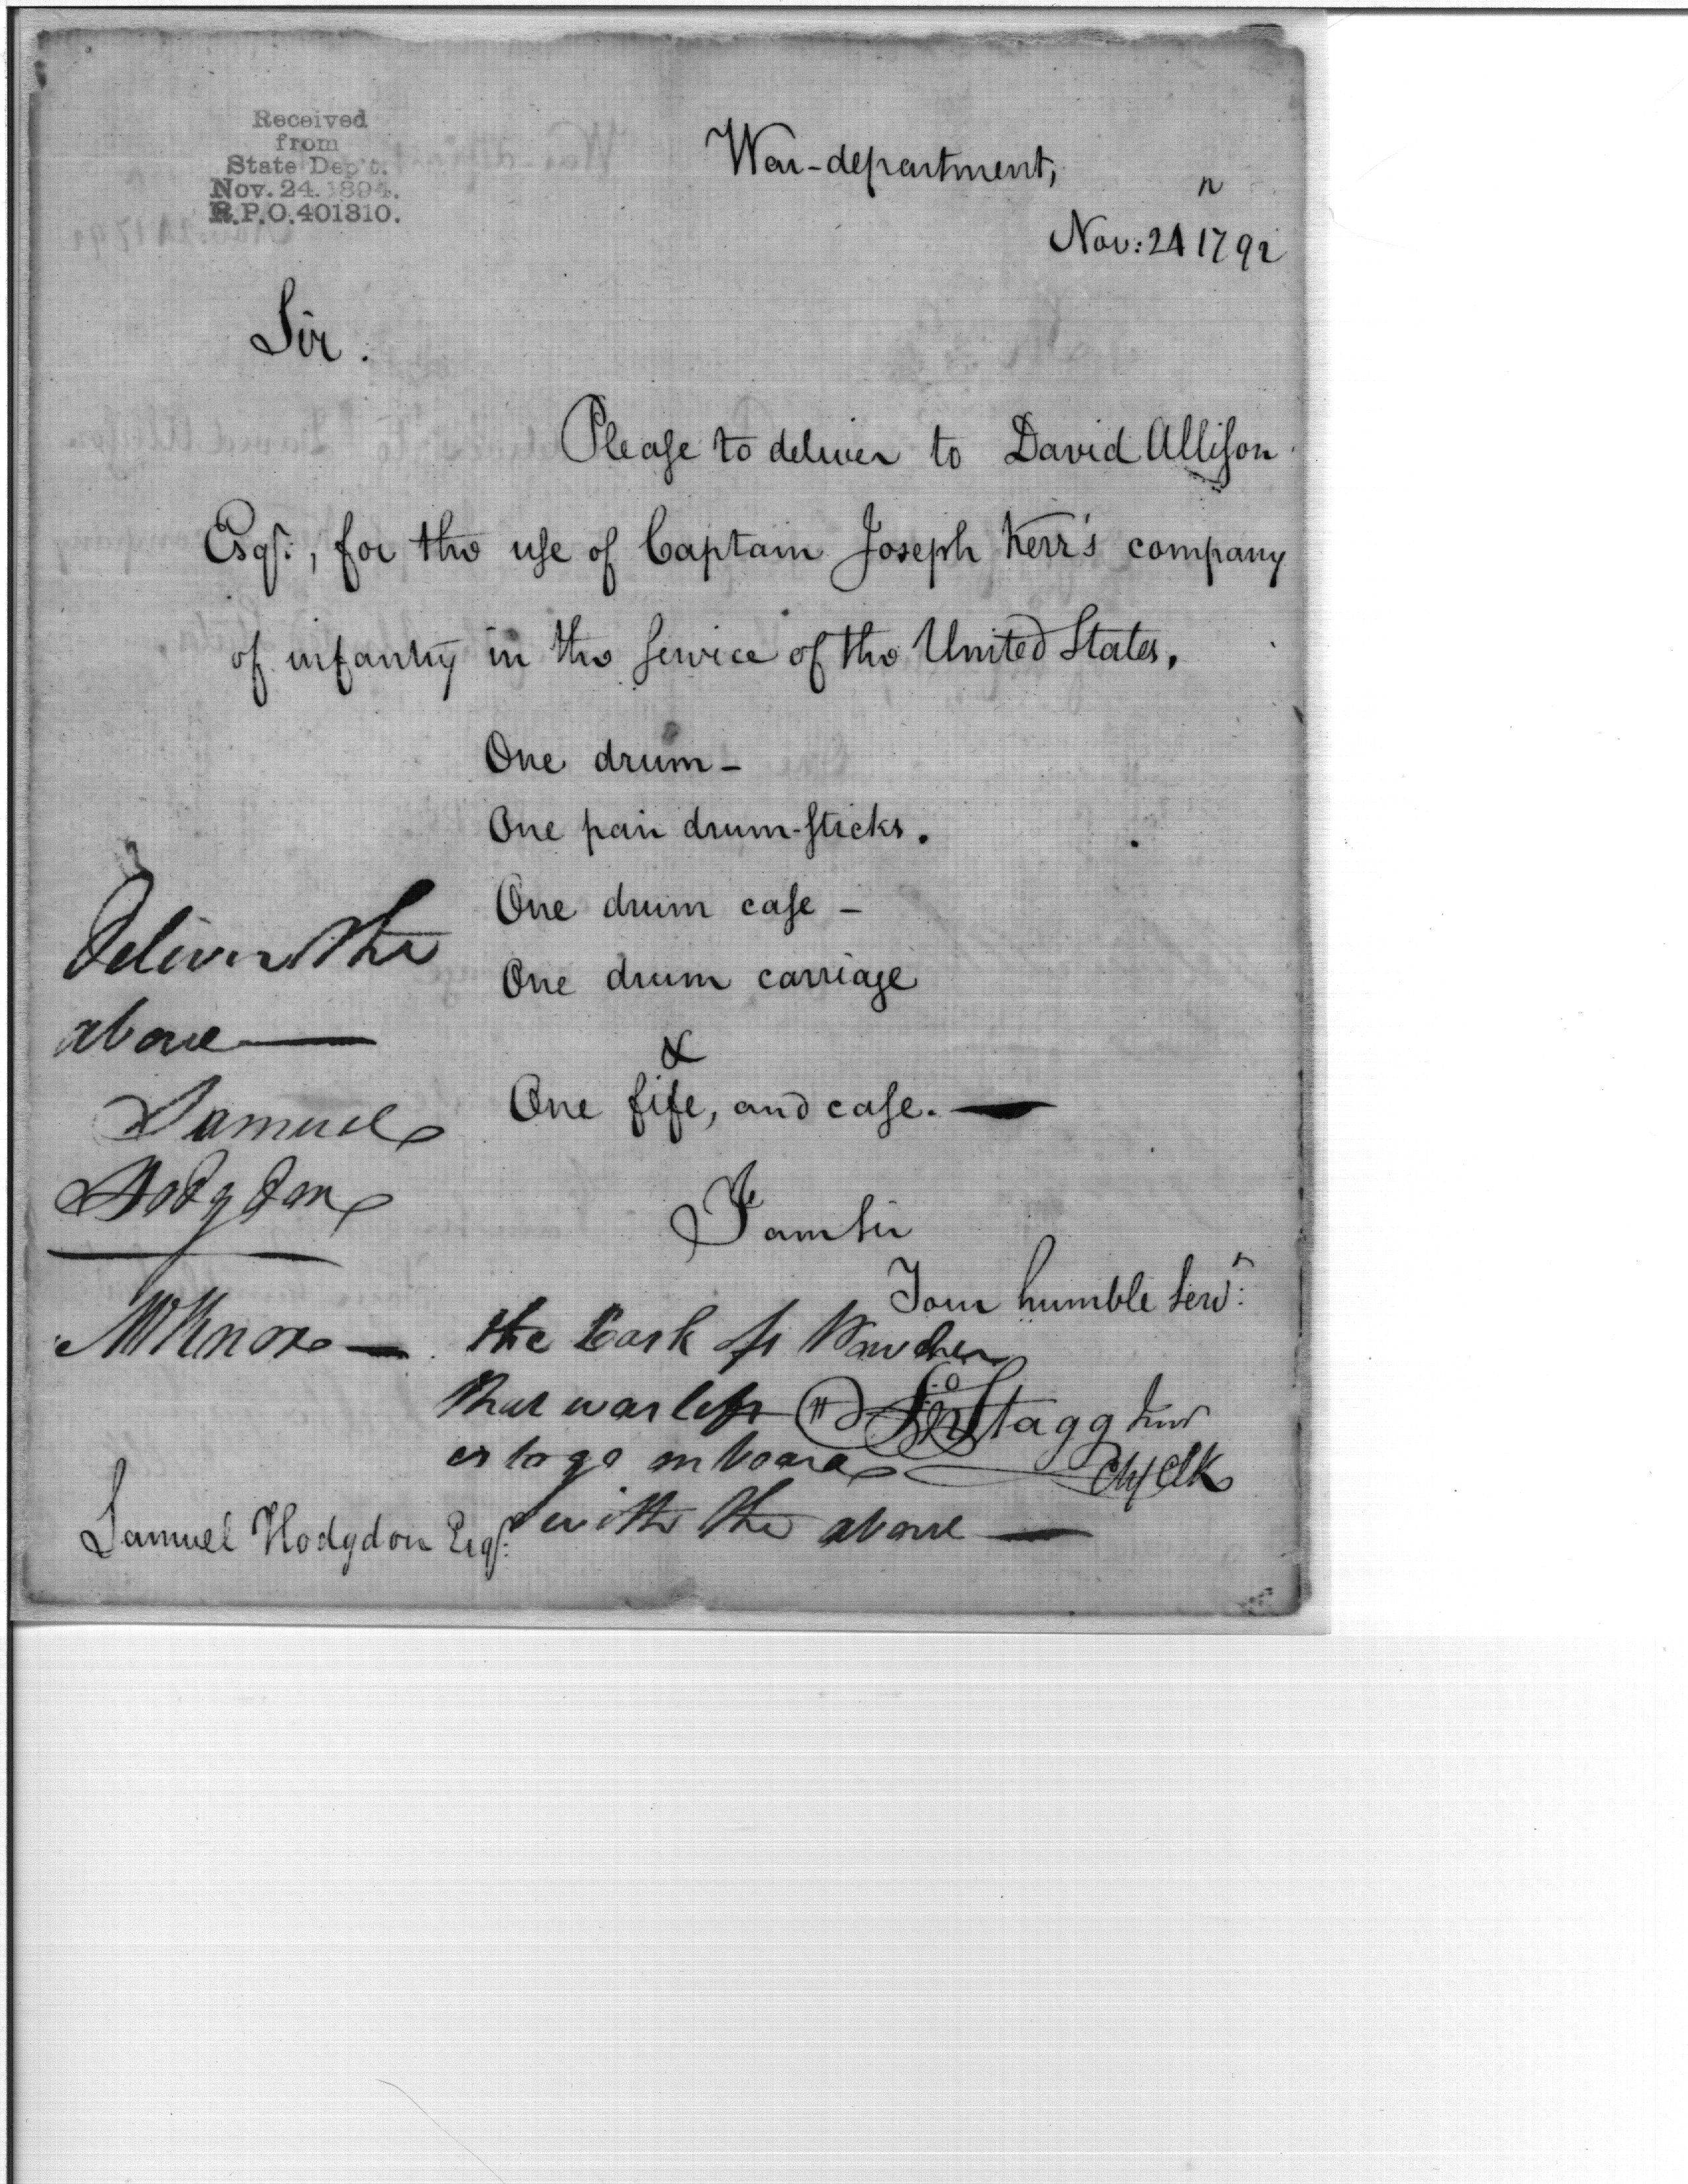 Received
from
State Dep't.
Nov. 24. 1894.
R.P.O. 401310.
War-department,
Nov: 24 1792
Sir.
Please to deliver to David Allison
Esqr:, for the use of Captain Joseph Kerr's company
of infantry in the service of the United States.
One drum-
One pair drum-sticks.
One drum case -
One drum carriage
&
One fife, and case. —
I am Sir
Your humble Servt:
Jno Stagg Junr
Chf Clk
Deliver the
above —
Samuel
Hodgdon
Mr Knox —
the Cask of Powder
that was left
is to go on board
with the above —
Samuel Hodgdon Esqr: